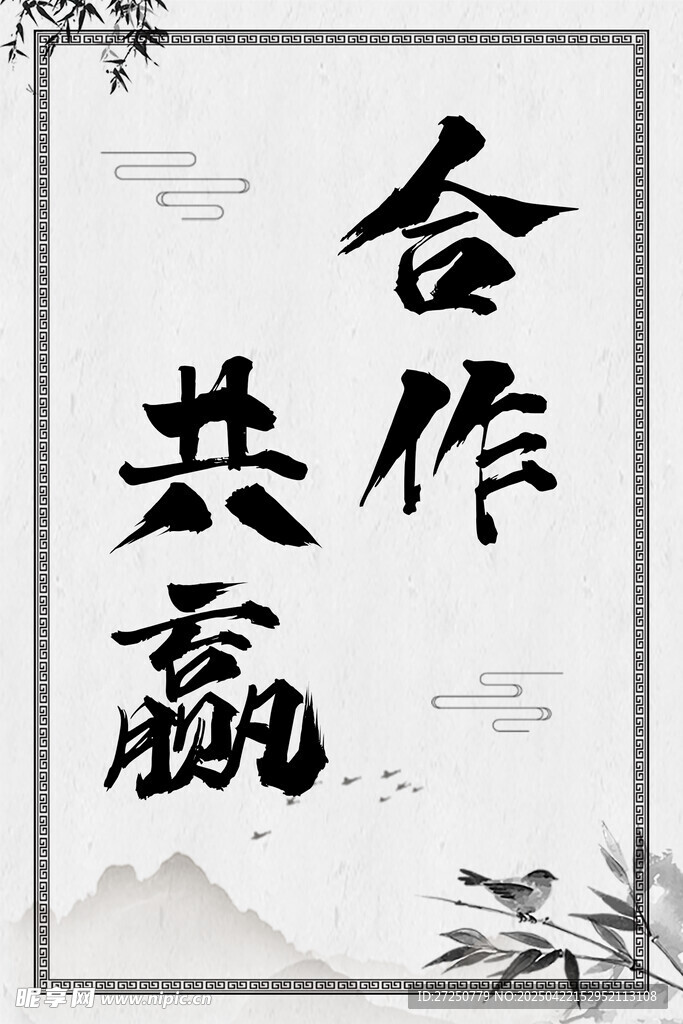 合作
共赢
昵享网 www.nipic.cn
ID:27250779 NO:20250422152952113108